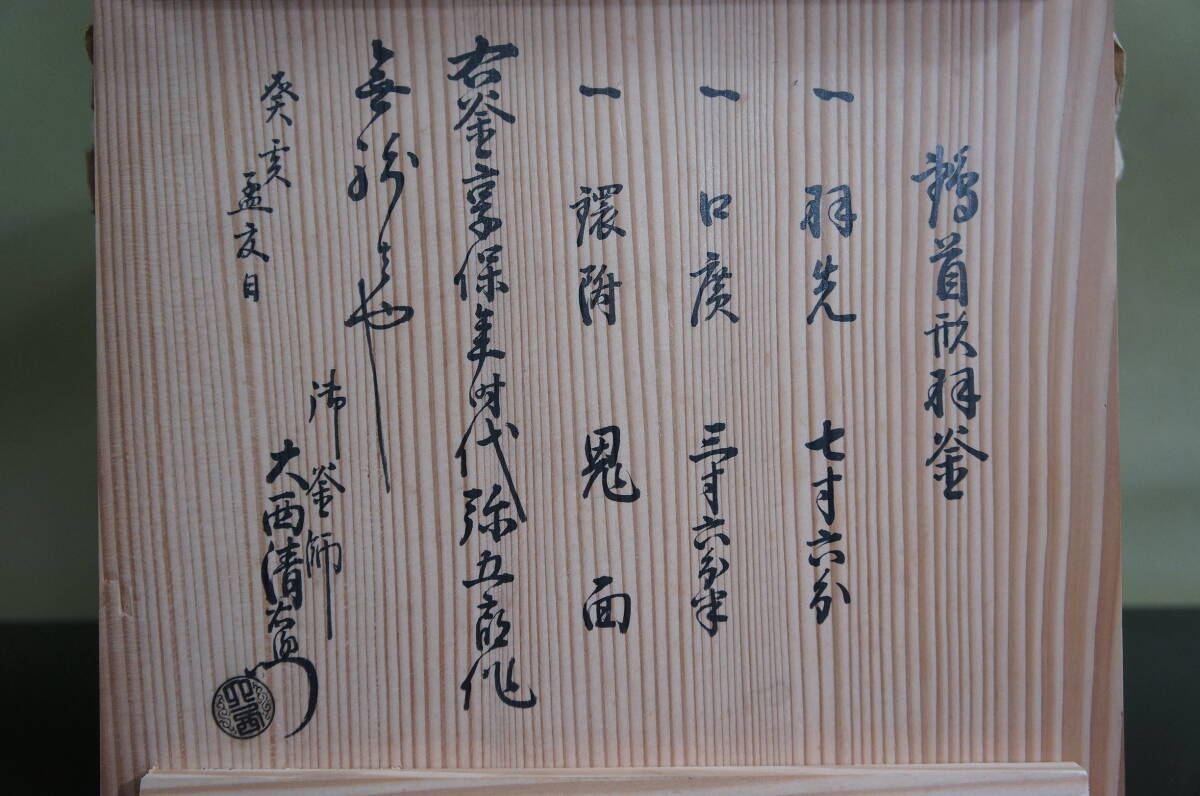 鶴首形羽釜
一 羽先 七寸六分
一 口廣 三寸六分半
一 鐶附 鬼面
右釜享保年時代弥五郎作
無紛者也
癸亥
孟夏日
御釜師
大西清右衛門
大西